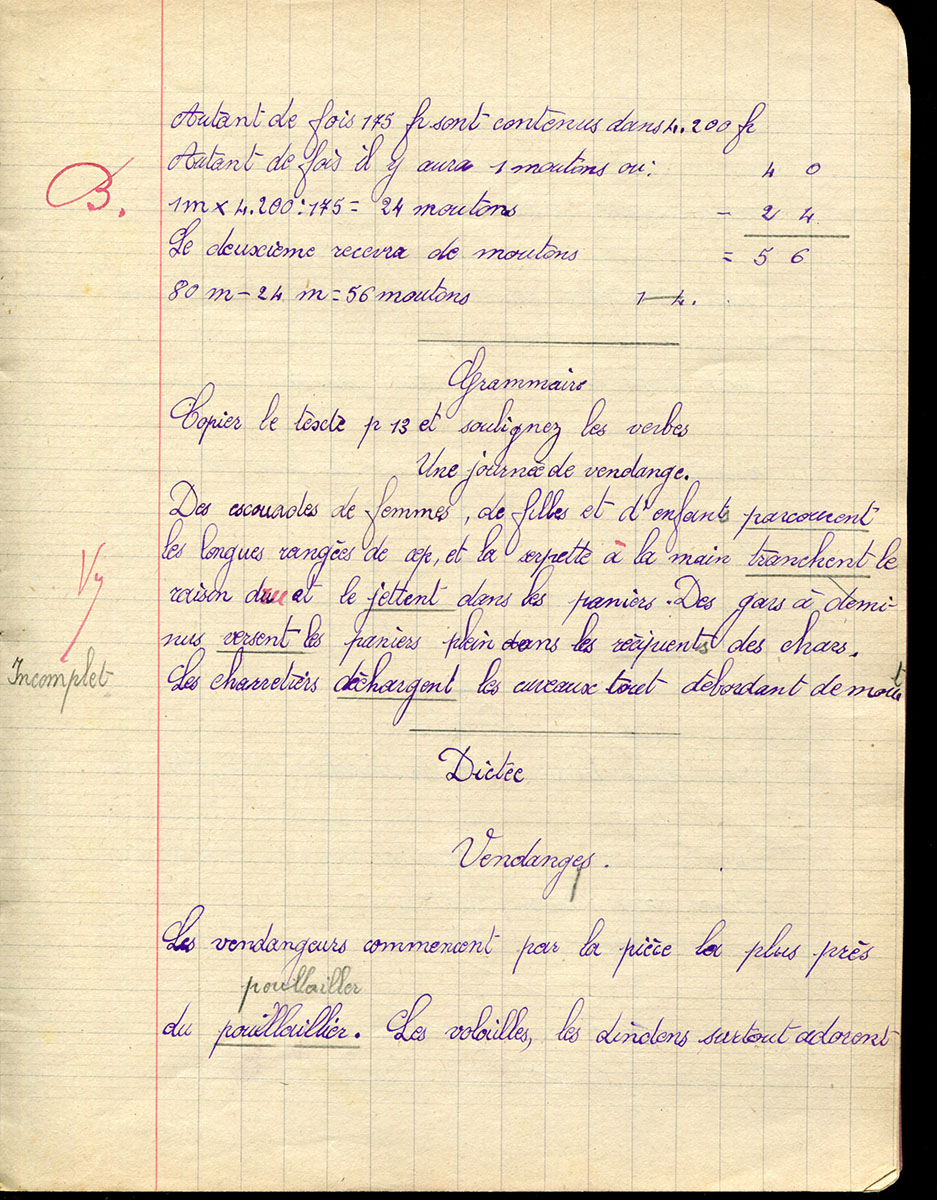 Autant de fois 175 fr sont contenus dans 4.200 fr
Autant de fois il y aura 1 moutons ou:
4 0
B.
1m x 4.200 : 175 = 24 moutons
- 2 4
Le deuxième recevra de moutons
= 5 6
80 m - 24 m = 56 moutons
1 4.
Grammaire
Copier le texte p 13 et soulignez les verbes
Une journée de vendange.
Des escouades de femmes, de filles et d'enfants parcourent
les longues rangées de cep, et la serpette à la main tranchent le
raison et le jettent dans les paniers. Des gars à demi-
nus versent les paniers plein dans les récipients des chars.
Incomplet
Les charretiers déchargent les cuveaux tout débordant de moût
Dictée
Vendanges.
Les vendangeurs commencent par la pièce la plus près
poullailler
du pouillaillier. Les volailles, les dindons surtout adorent